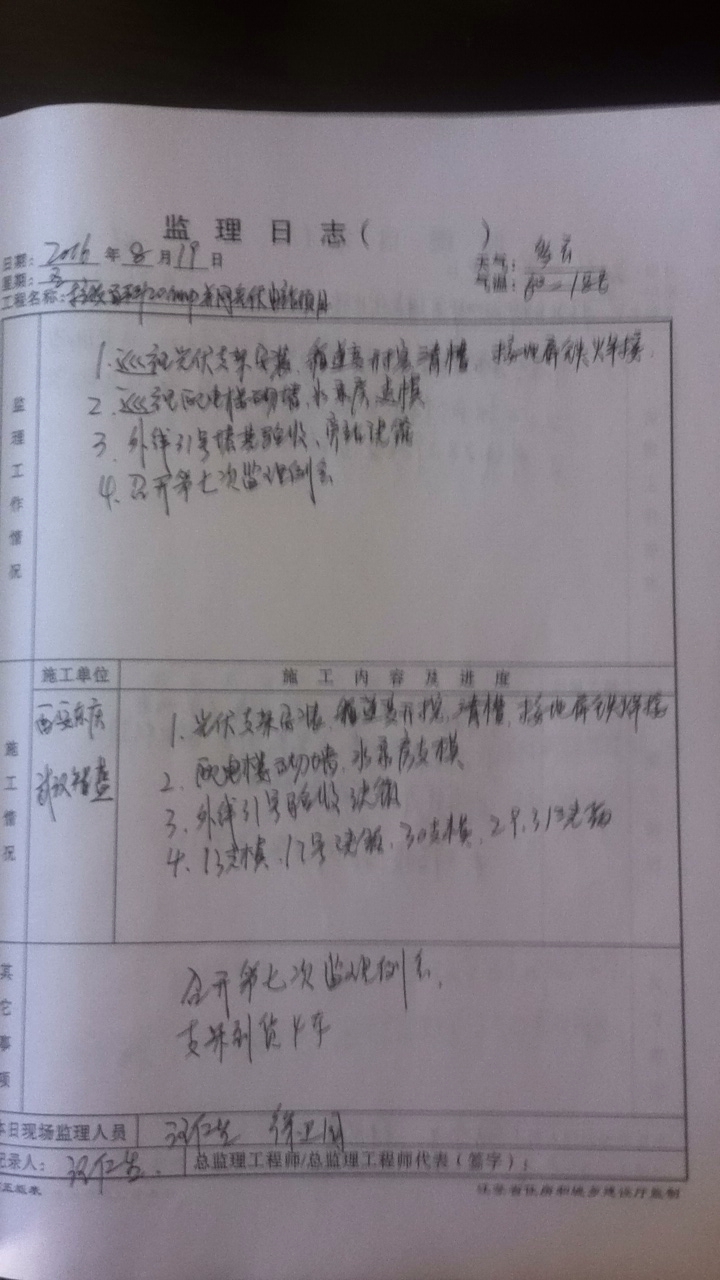 监理日志（ ）
日期：2016年8月19日
天气：多云
星期：五
气温：
工程名称：20MWp并网光伏电站项目
监理工作情况
1.巡视光伏支架安装、箱变基开挖清槽、接地扁铁焊接
2.巡视配电楼砌墙、水泵房支模
3.外线31号塔基验收、旁站浇筑
4.召开第七次监理例会
施工单位
施工内容及进度
施工情况
西安
武汉
1.光伏支架安装、箱变基开挖、清槽、接地扁铁焊接
2.配电楼砌墙、水泵房支模
3.外线31号验收浇筑
4.13支模、17号浇筑、30支模、29.31浇筑
其它事项
召开第七次监理例会，
支架到货
本日现场监理人员
记录人：
总监理工程师/总监理工程师代表（签字）：
第五版表
江苏省住房和城乡建设厅监制